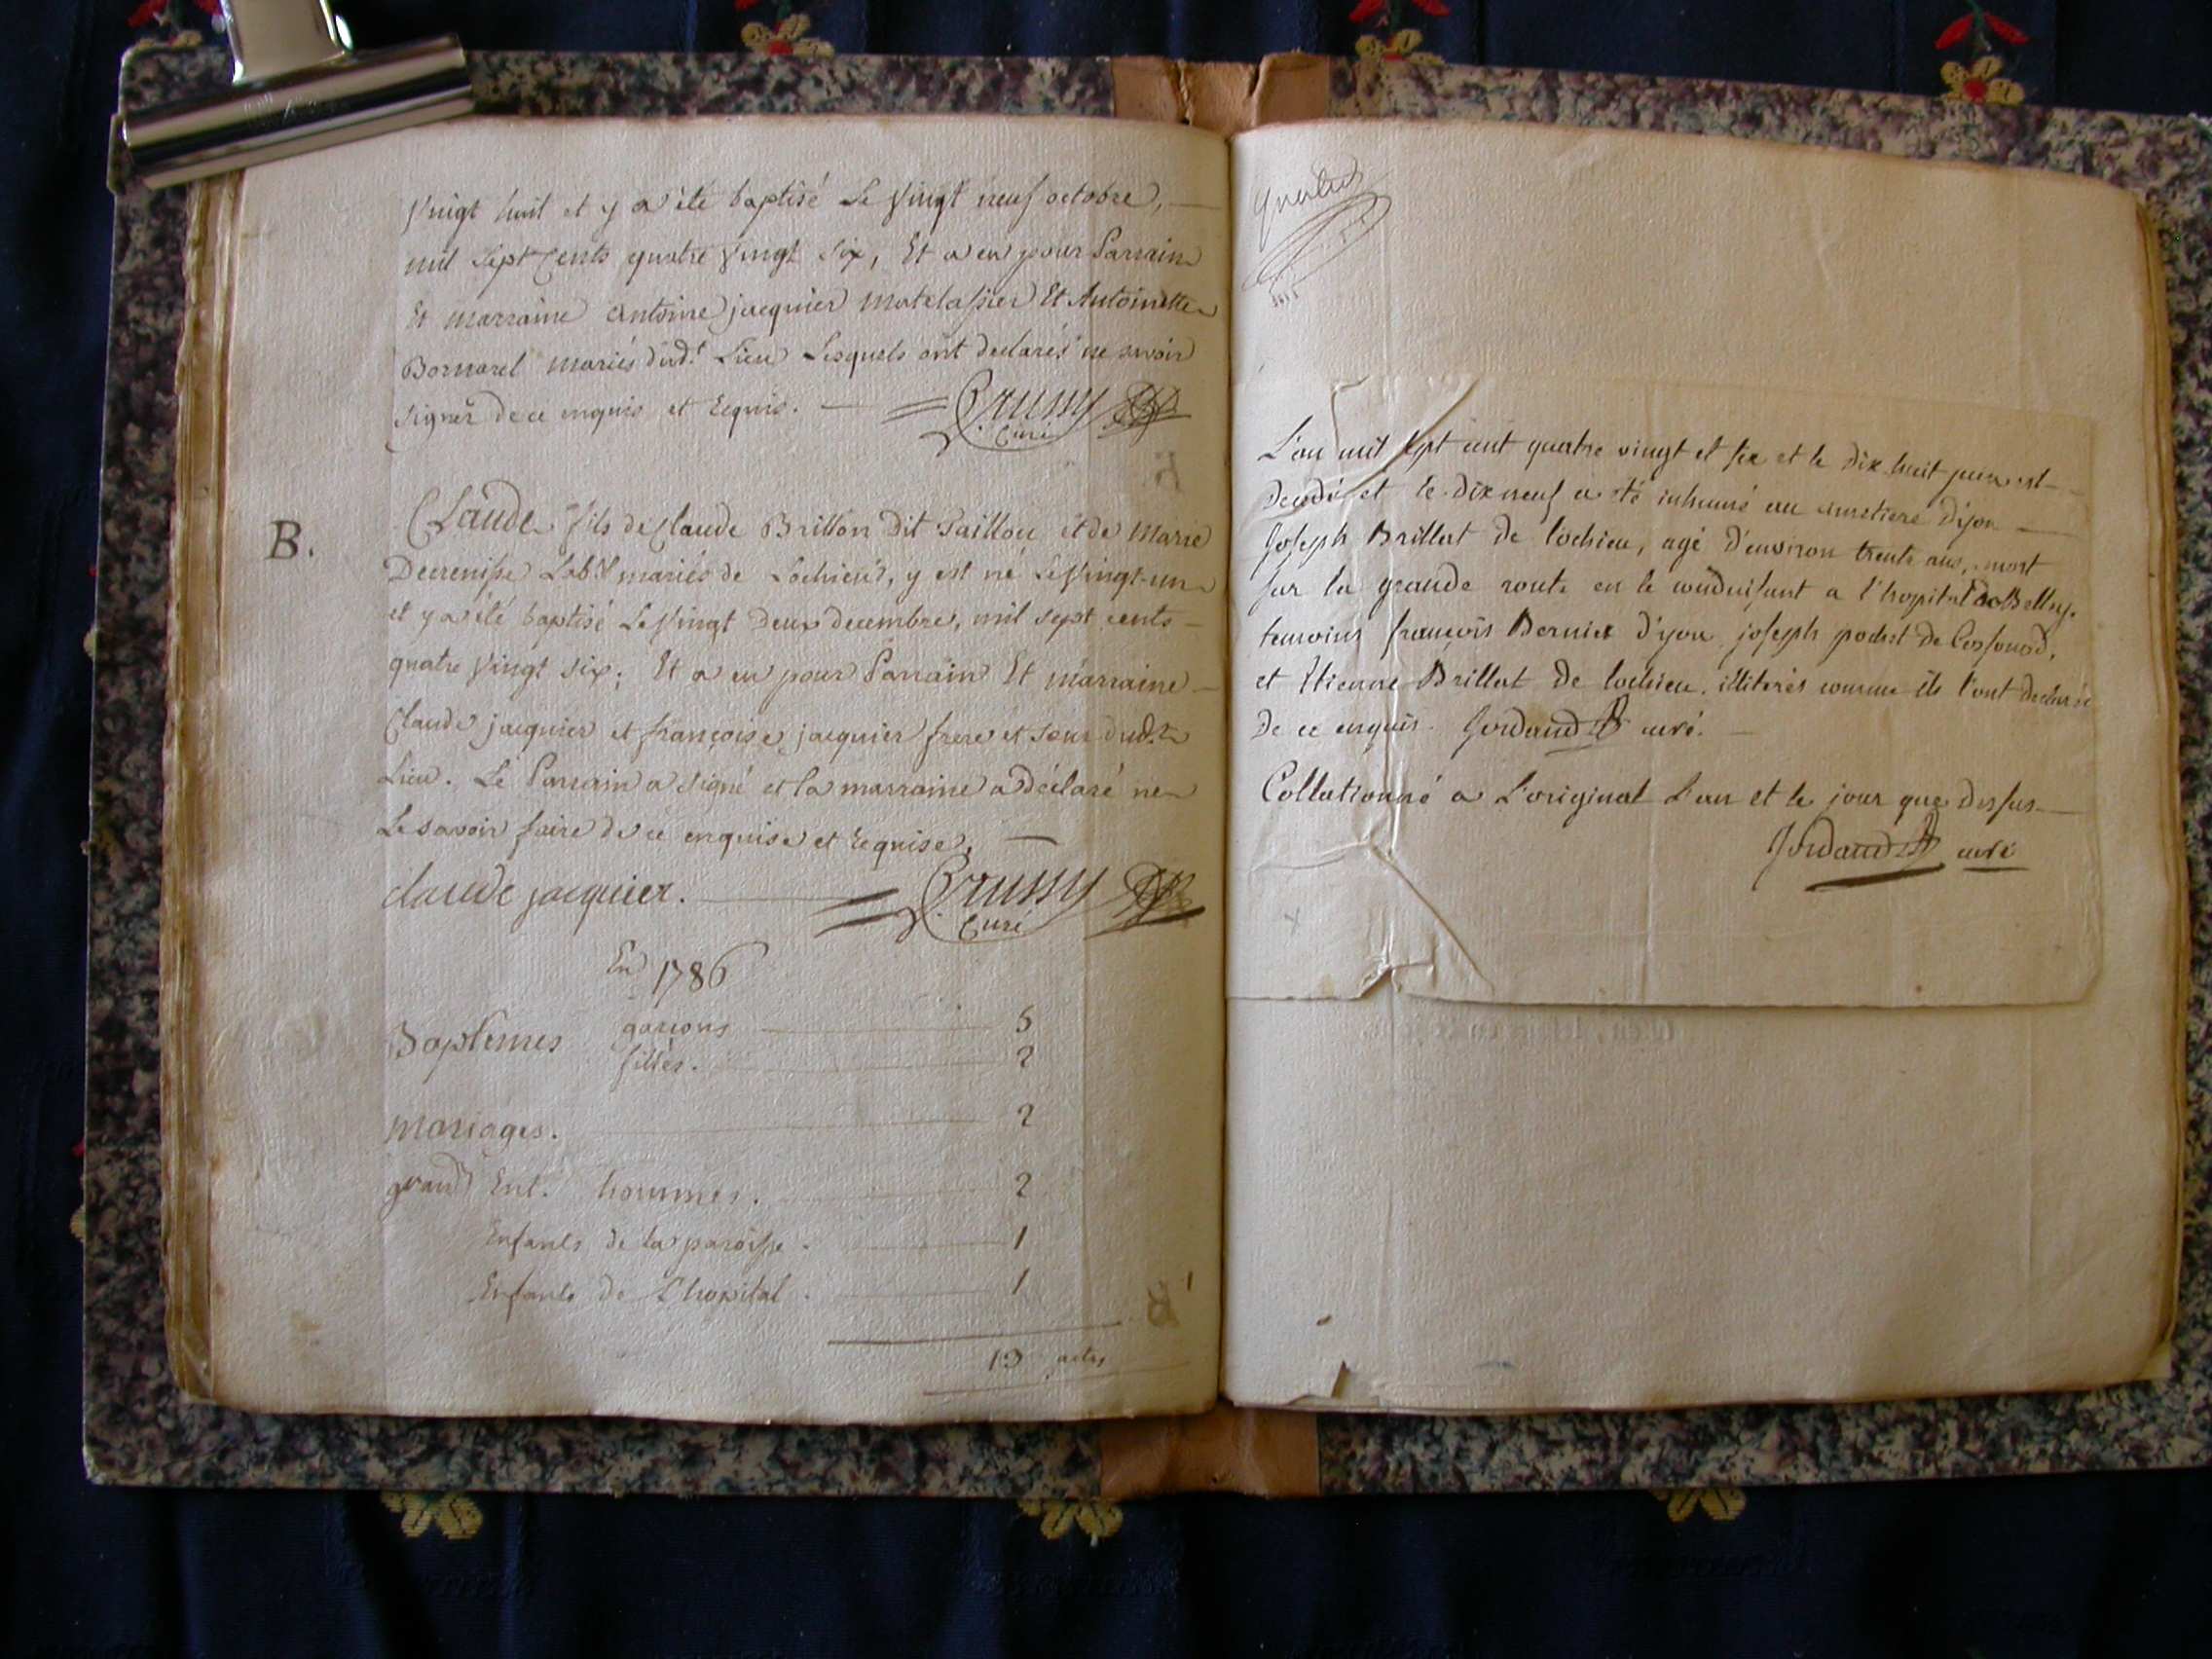 Vingt huit et y a été baptisé Le Vingt neuf octobre,
mil Sept Cents quatre Vingt Six, Et a eu pour Parrain
Et marraine Antoine jacquier matelassier Et Antoinette
Bornarel mariés dud.t Lieu Lesquels ont declarés ne savoir
signer de ce enquis et Requis.
Crussy
Curé
B.
Claude fils de Claude Brillon Dit Taillou et de Marie
Decrenisse Lab.rs mariés de Lochieu, y est né Le Vingt-un
et y a été baptisé Le Vingt Deux decembre, mil sept cents
quatre Vingt Six; Et a eu pour Parrain Et marraine
Claude jacquier et françoise jacquier frere et soeur dud.t
Lieu. Le Parrain a signé et la marraine a déclaré ne
Le savoir faire de ce enquise et Requise.
claude jacquier.
Crussy
Curé
En 1786
Baptemes garçons 5
filles. 2
mariages. 2
grand Ent. hommes. 2
Enfants de la paroisse. 1
Enfants de L'hopital. 1
13 actes
L'an mil sept cent quatre vingt et six et le dix huit juin est
decedé et le dix neuf a été inhumé au cimetiere d'yon
Joseph Brillat de lochieu, agé d'environ trente ans, mort
sur la grande route en le conduisant a l'hopital de Belley.
temoins françois Bernier d'yon joseph de
et Etienne Brillat de lochieu. illiterés comme ils l'ont declaré
de ce enquis. Jordand curé.
Collationné a L'original L'an et le jour que dessus
Jordand curé